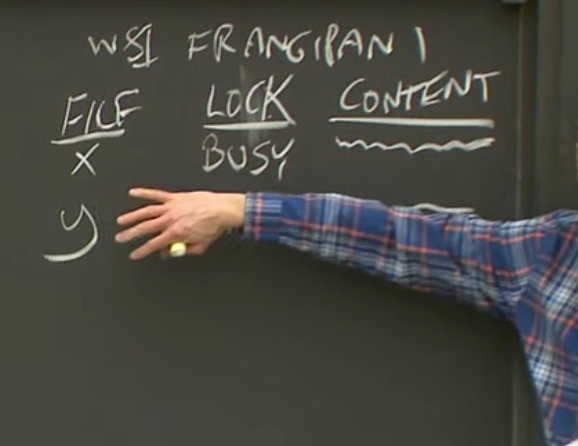 WS1 FRANGIPANI
FILE LOCK CONTENT
X BUSY
y